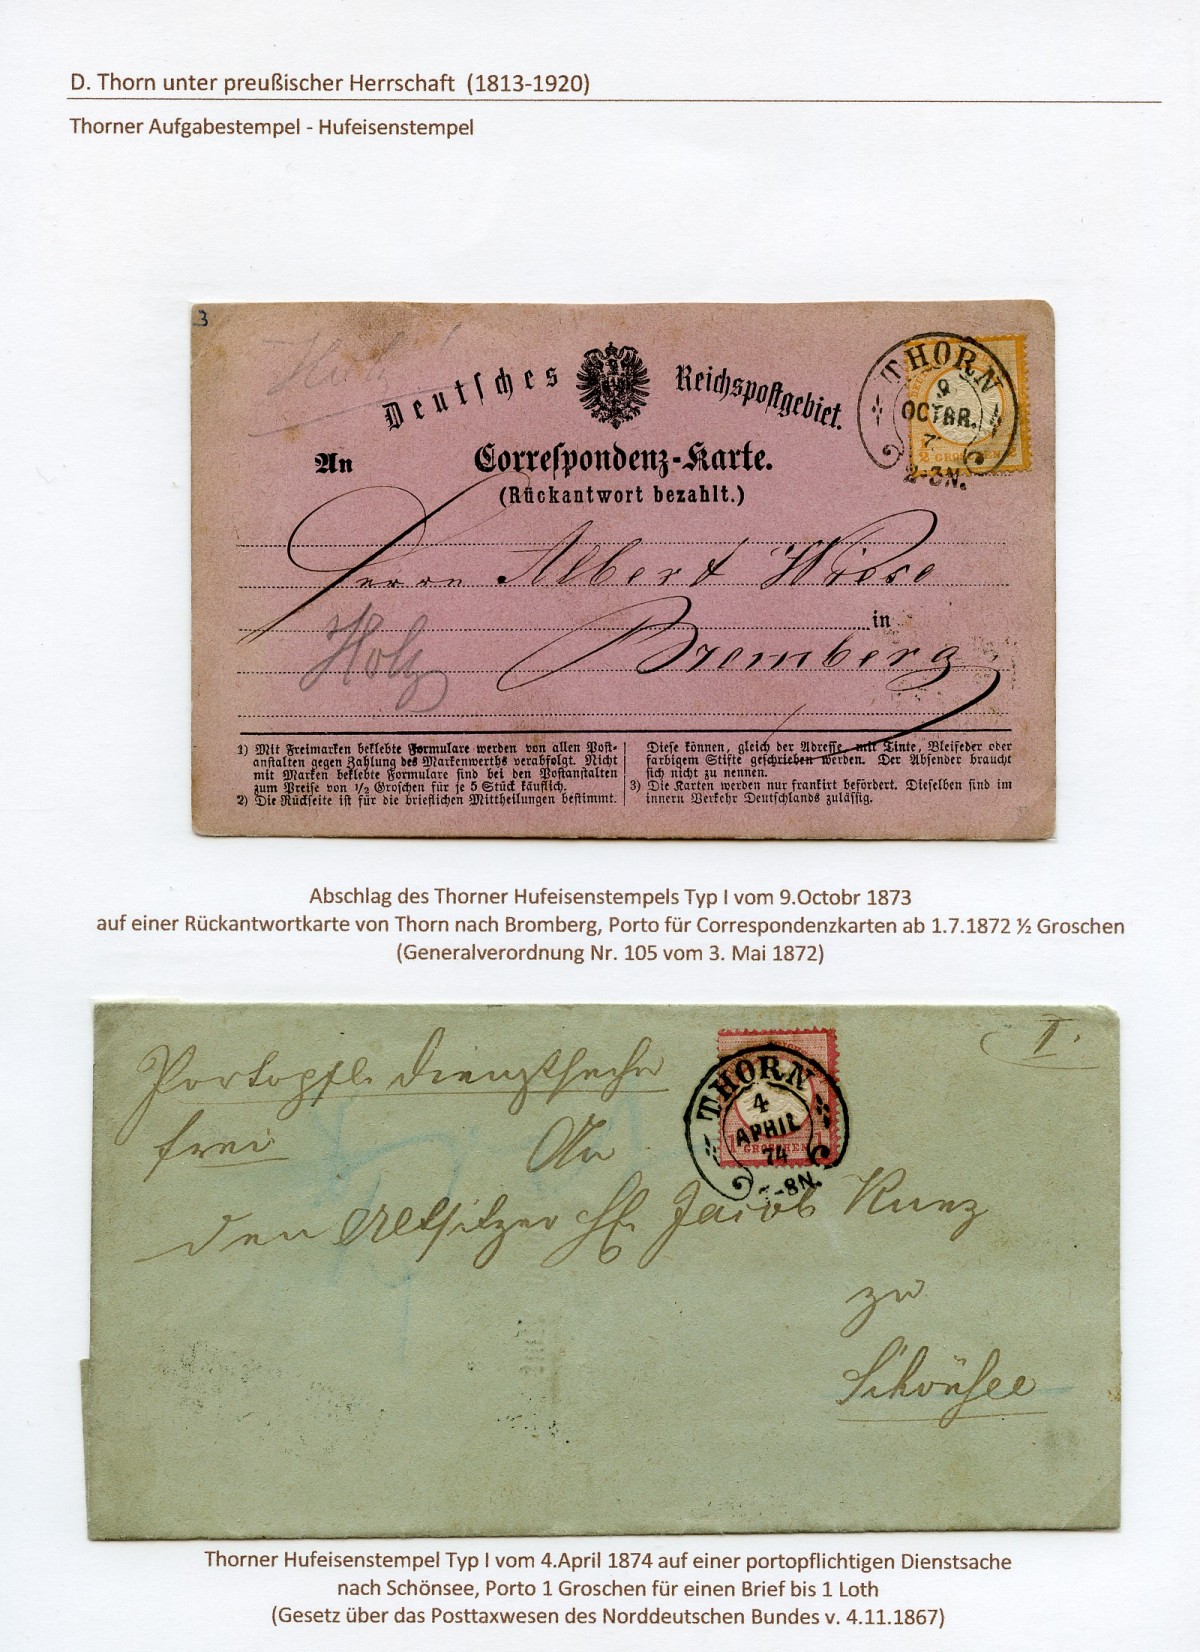 D. Thorn unter preußischer Herrschaft (1813-1920)
Thorner Aufgabestempel - Hufeisenstempel
3
Deutsches Reichspostgebiet.
THORN
9
OCTBR.
7
2-3N.
An
Correspondenz-Karte.
(Rückantwort bezahlt.)
Herrn Albert Wiese
in
Holz
Bromberg
1) Mit Freimarken beklebte Formulare werden von allen Post-
anstalten gegen Zahlung des Markenwerths verabfolgt. Nicht
mit Marken beklebte Formulare sind bei den Postanstalten
zum Preise von 1/2 Groschen für je 5 Stück käuflich.
2) Die Rückseite ist für die brieflichen Mittheilungen bestimmt.
Diese können, gleich der Adresse, mit Tinte, Bleifeder oder
farbigem Stifte geschrieben werden. Der Absender braucht
sich nicht zu nennen.
3) Die Karten werden nur frankirt befördert. Dieselben sind im
innern Verkehr Deutschlands zulässig.
Abschlag des Thorner Hufeisenstempels Typ I vom 9.Octobr 1873
auf einer Rückantwortkarte von Thorn nach Bromberg, Porto für Correspondenzkarten ab 1.7.1872 ½ Groschen
(Generalverordnung Nr. 105 vom 3. Mai 1872)
I.
Portopfl. Dienstsache
frei
An
THORN
4
APRIL
74
-8N.
1 GROSCHEN 1
den Altsitzer H. Jacob Kunz
zu
Schönsee
Thorner Hufeisenstempel Typ I vom 4.April 1874 auf einer portopflichtigen Dienstsache
nach Schönsee, Porto 1 Groschen für einen Brief bis 1 Loth
(Gesetz über das Posttaxwesen des Norddeutschen Bundes v. 4.11.1867)